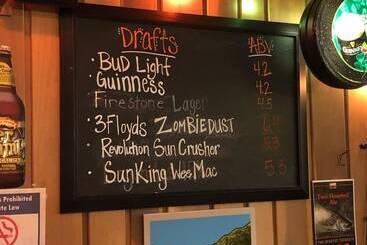 Drafts ABV
• BUD Light 4.2
• Guinness 4.2
Firestone Lager 4.5
• 3Floyds ZOMBIEDUST
• Revolution Sun Crusher 5.3
• SunKing Wee Mac 5.3
Prohibited
te Law